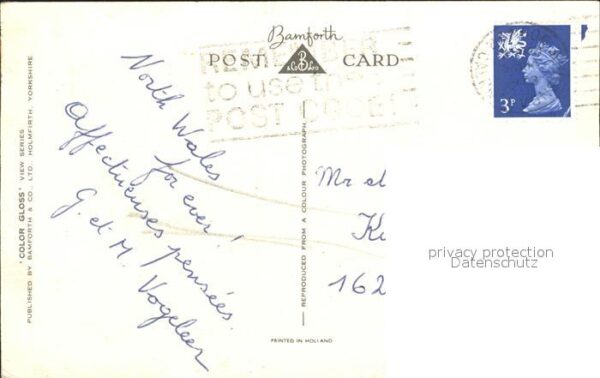 Bamforth
POST CARD
B
& Co Ltd
REMEMBER
to use the
POST CODE
3P
North Wales
for ever!
affectueuses pensées.
G. et M. Vogeleer
Mr et
162
privacy protection
Datenschutz
'COLOR GLOSS' VIEW SERIES
PUBLISHED BY BAMFORTH & CO., LTD., HOLMFIRTH, YORKSHIRE
REPRODUCED FROM A COLOUR PHOTOGRAPH.
PRINTED IN HOLLAND